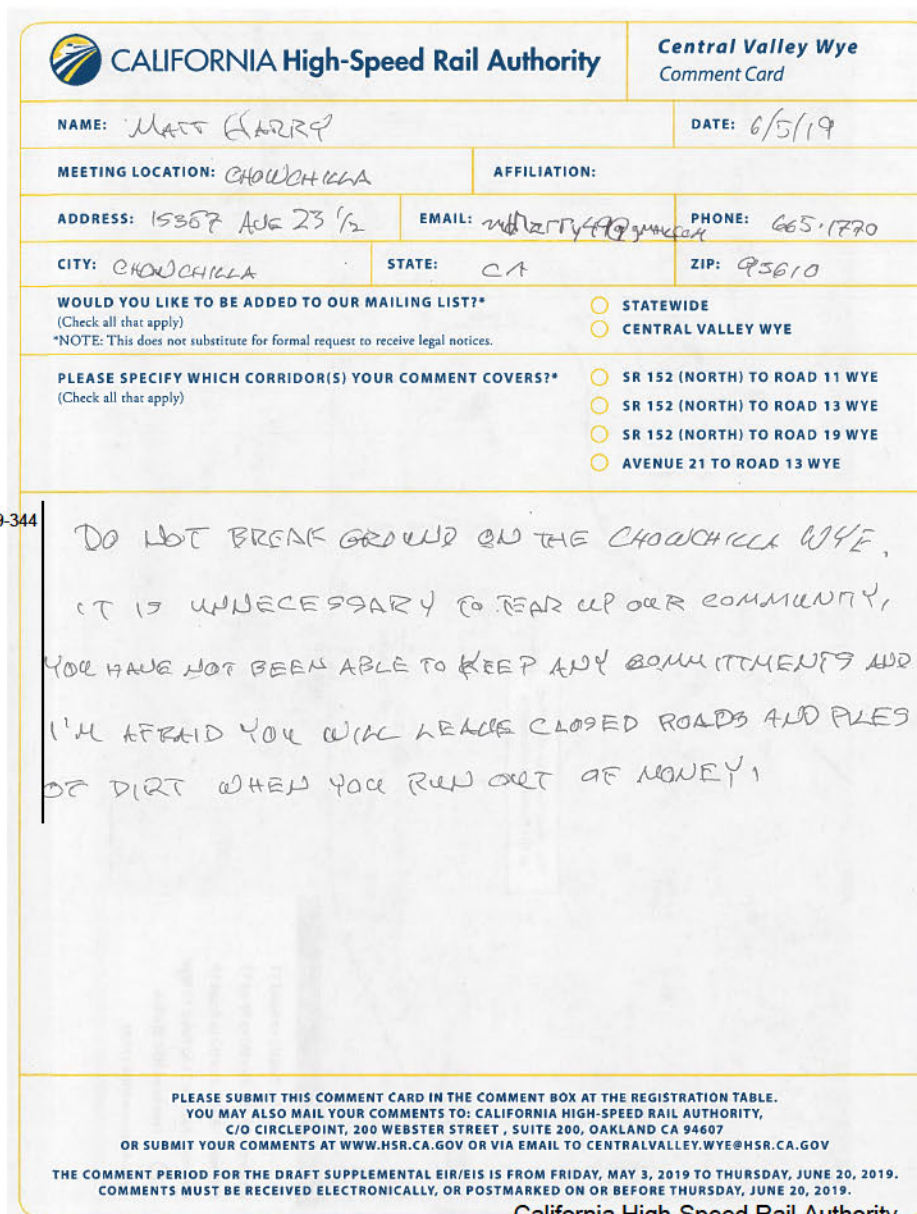 CALIFORNIA High-Speed Rail Authority
Central Valley Wye
Comment Card
NAME: MATT HARRY
DATE: 6/5/19
MEETING LOCATION: CHOWCHILLA
AFFILIATION:
ADDRESS: 15357 AVE 23 1/2
EMAIL:
PHONE: 665.1770
CITY: CHOWCHILLA
STATE: CA
ZIP: 95610
WOULD YOU LIKE TO BE ADDED TO OUR MAILING LIST?*
(Check all that apply)
*NOTE: This does not substitute for formal request to receive legal notices.
STATEWIDE
CENTRAL VALLEY WYE
PLEASE SPECIFY WHICH CORRIDOR(S) YOUR COMMENT COVERS?*
(Check all that apply)
SR 152 (NORTH) TO ROAD 11 WYE
SR 152 (NORTH) TO ROAD 13 WYE
SR 152 (NORTH) TO ROAD 19 WYE
AVENUE 21 TO ROAD 13 WYE
9-344
DO NOT BREAK GROUND ON THE CHOWCHILLA WYE.
IT IS UNNECESSARY TO TEAR UP OUR COMMUNITY,
YOU HAVE NOT BEEN ABLE TO KEEP ANY COMMITTMENTS AND
I'M AFRAID YOU WILL LEAVE CLOSED ROADS AND PILES
OF DIRT WHEN YOU RUN OUT OF MONEY.
PLEASE SUBMIT THIS COMMENT CARD IN THE COMMENT BOX AT THE REGISTRATION TABLE.
YOU MAY ALSO MAIL YOUR COMMENTS TO: CALIFORNIA HIGH-SPEED RAIL AUTHORITY,
C/O CIRCLEPOINT, 200 WEBSTER STREET , SUITE 200, OAKLAND CA 94607
OR SUBMIT YOUR COMMENTS AT WWW.HSR.CA.GOV OR VIA EMAIL TO CENTRALVALLEY.WYE@HSR.CA.GOV
THE COMMENT PERIOD FOR THE DRAFT SUPPLEMENTAL EIR/EIS IS FROM FRIDAY, MAY 3, 2019 TO THURSDAY, JUNE 20, 2019.
COMMENTS MUST BE RECEIVED ELECTRONICALLY, OR POSTMARKED ON OR BEFORE THURSDAY, JUNE 20, 2019.
California High-Speed Rail Authority